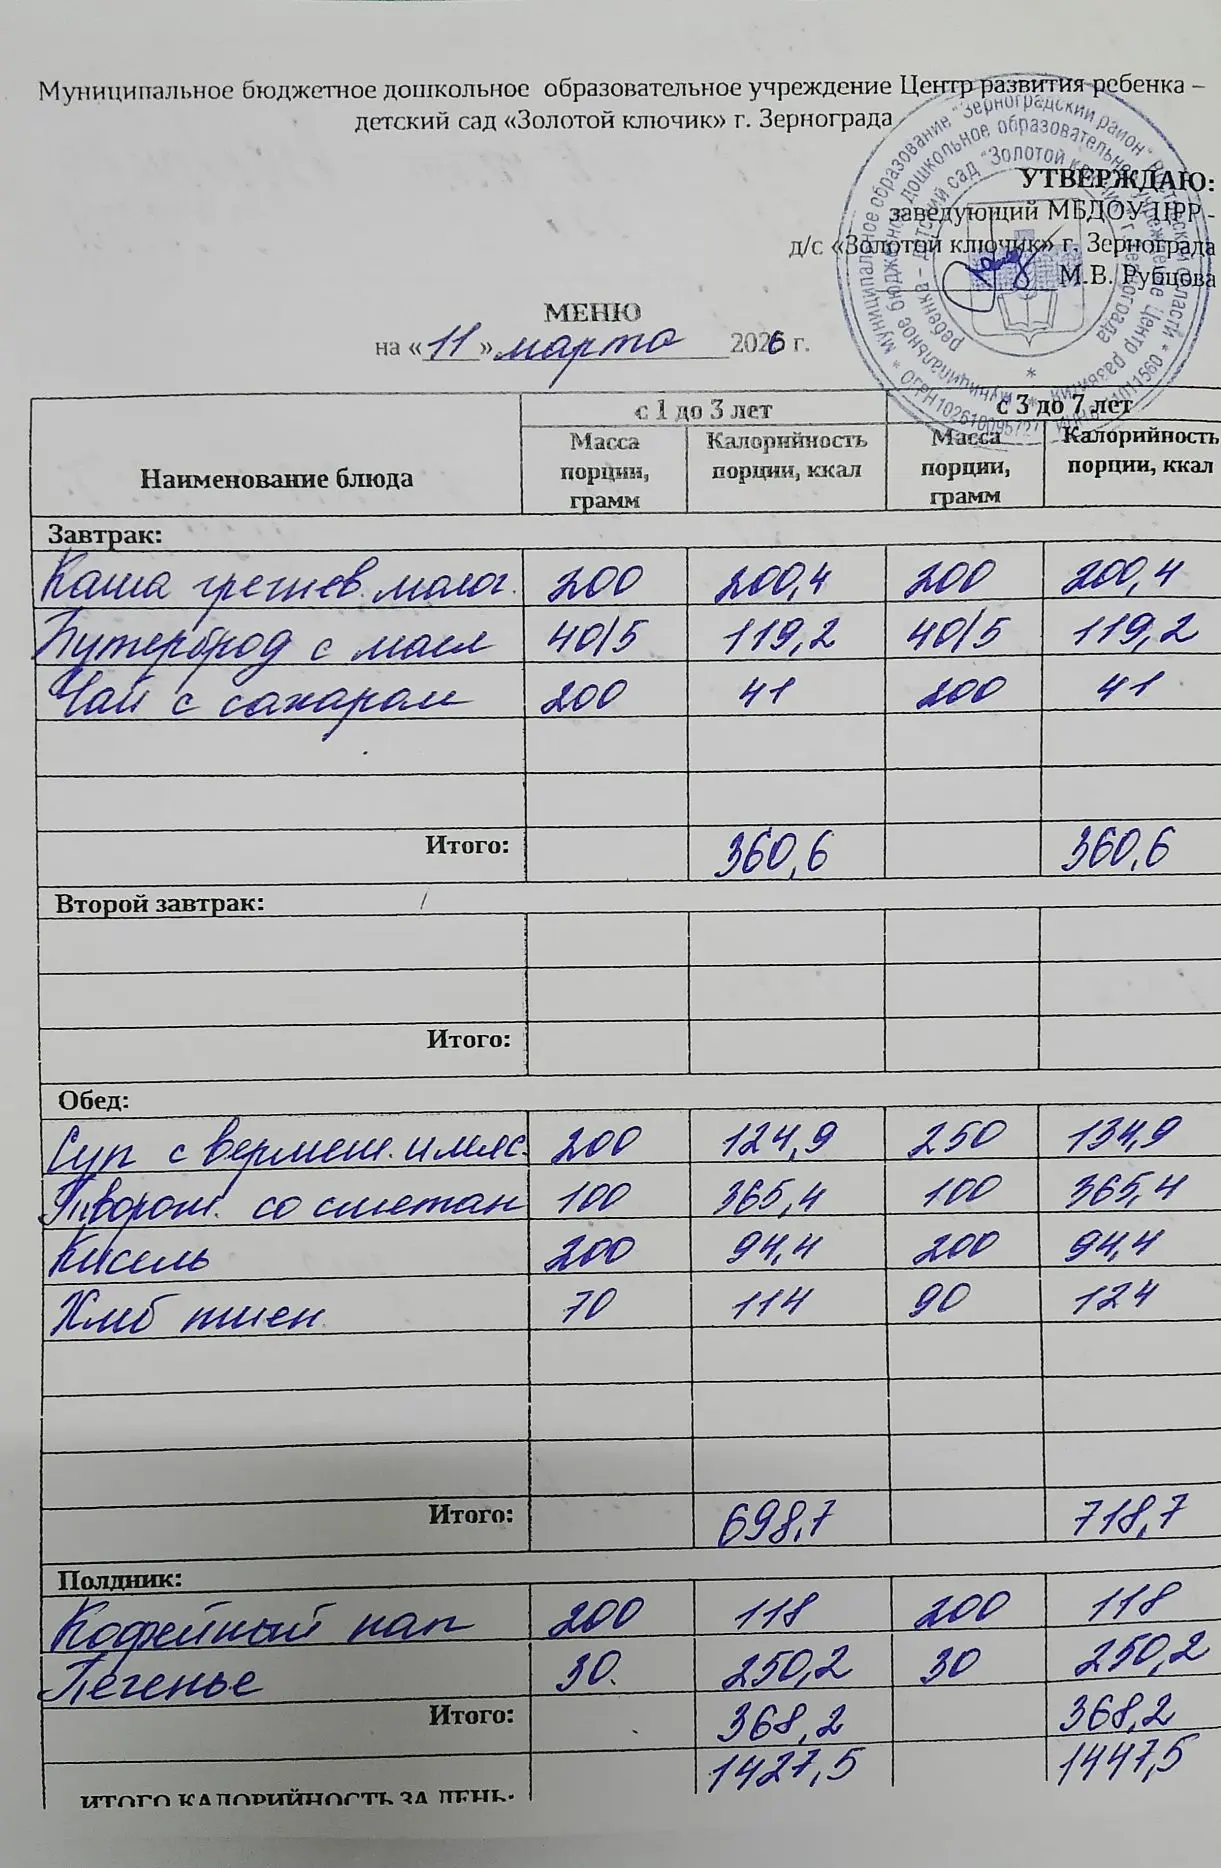 Муниципальное бюджетное дошкольное образовательное учреждение Центр развития ребенка –
детский сад «Золотой ключик» г. Зернограда
УТВЕРЖДАЮ:
заведующий МБДОУ ЦРР -
д/с «Золотой ключик» г. Зернограда
М.В. Рубцова
МЕНЮ
на «11» марта 2026 г.
Наименование блюда с 1 до 3 лет с 3 до 7 лет
Масса порции, грамм Калорийность порции, ккал Масса порции, грамм Калорийность порции, ккал
Завтрак:
Каша гречнев. молоч. 200 200,4 200 200,4
Бутерброд с масл 40/5 119,2 40/5 119,2
Чай с сахаром 200 41 200 41
Итого: 360,6 360,6
Второй завтрак:
Итого:
Обед:
Суп с вермеш. и мяс. 200 124,9 250 134,9
Творож. со сметан 100 365,4 100 365,4
Кисель 200 94,4 200 94,4
Хлеб пшен. 70 114 90 124
Итого: 698,7 718,7
Полдник:
Кофейный нап 200 118 200 118
Печенье 30. 250,2 30 250,2
Итого: 368,2 368,2
ИТОГО КАЛОРИЙНОСТЬ ЗА ДЕНЬ: 1427,5 1447,5